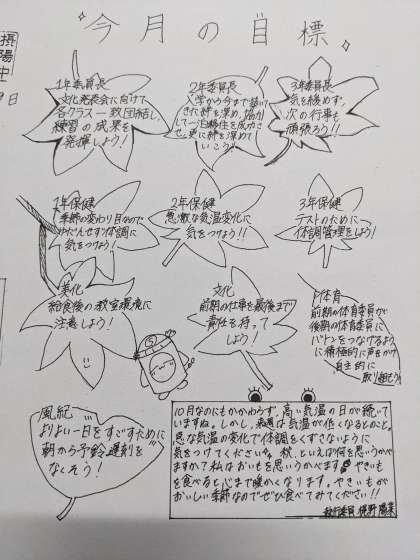 今月の目標
摂陽中
9日
1年委員長
文化発表会に向けて
各クラス一致団結し、
練習の成果を
発揮しよう！
2年委員長
入学から今まで築いて
きた絆を深め、協力
して一泊移住を成功さ
せ、更に絆を深めて
いこう！
3年委員長
気を緩めず、
次の行事も
頑張ろう！！
1年保健
季節の変わり目なので
ゆだんせず体調に
気をつけよう！
2年保健
急激な気温変化に
気をつけよう！！
3年保健
テストのために
体調管理をしよう！
美化
給食後の教室環境に
注意しよう！
文化
前期の仕事を最後まで
責任を持って
しよう！
体育
前期の体育委員が
後期の体育委員に
バトンをつなげるよう
に積極的に声をかけ
自主的に
取り組もう！
風紀
よりよい一日をすごすために
朝から予鈴遅刻を
なくそう！
10月なのにもかかわらず、高い気温の日が続いて
いますね。しかし、来週は気温が低くなるとのこと。
急な気温の変化で体調をくずさないように
気をつけてくださいね。秋、といえば何を思いうかべ
ますか？私はおいもを思いうかべます。やきいも
を食べると心まで暖かくなります。やきいもが
おいしい季節なのでぜひ食べてみてください！！